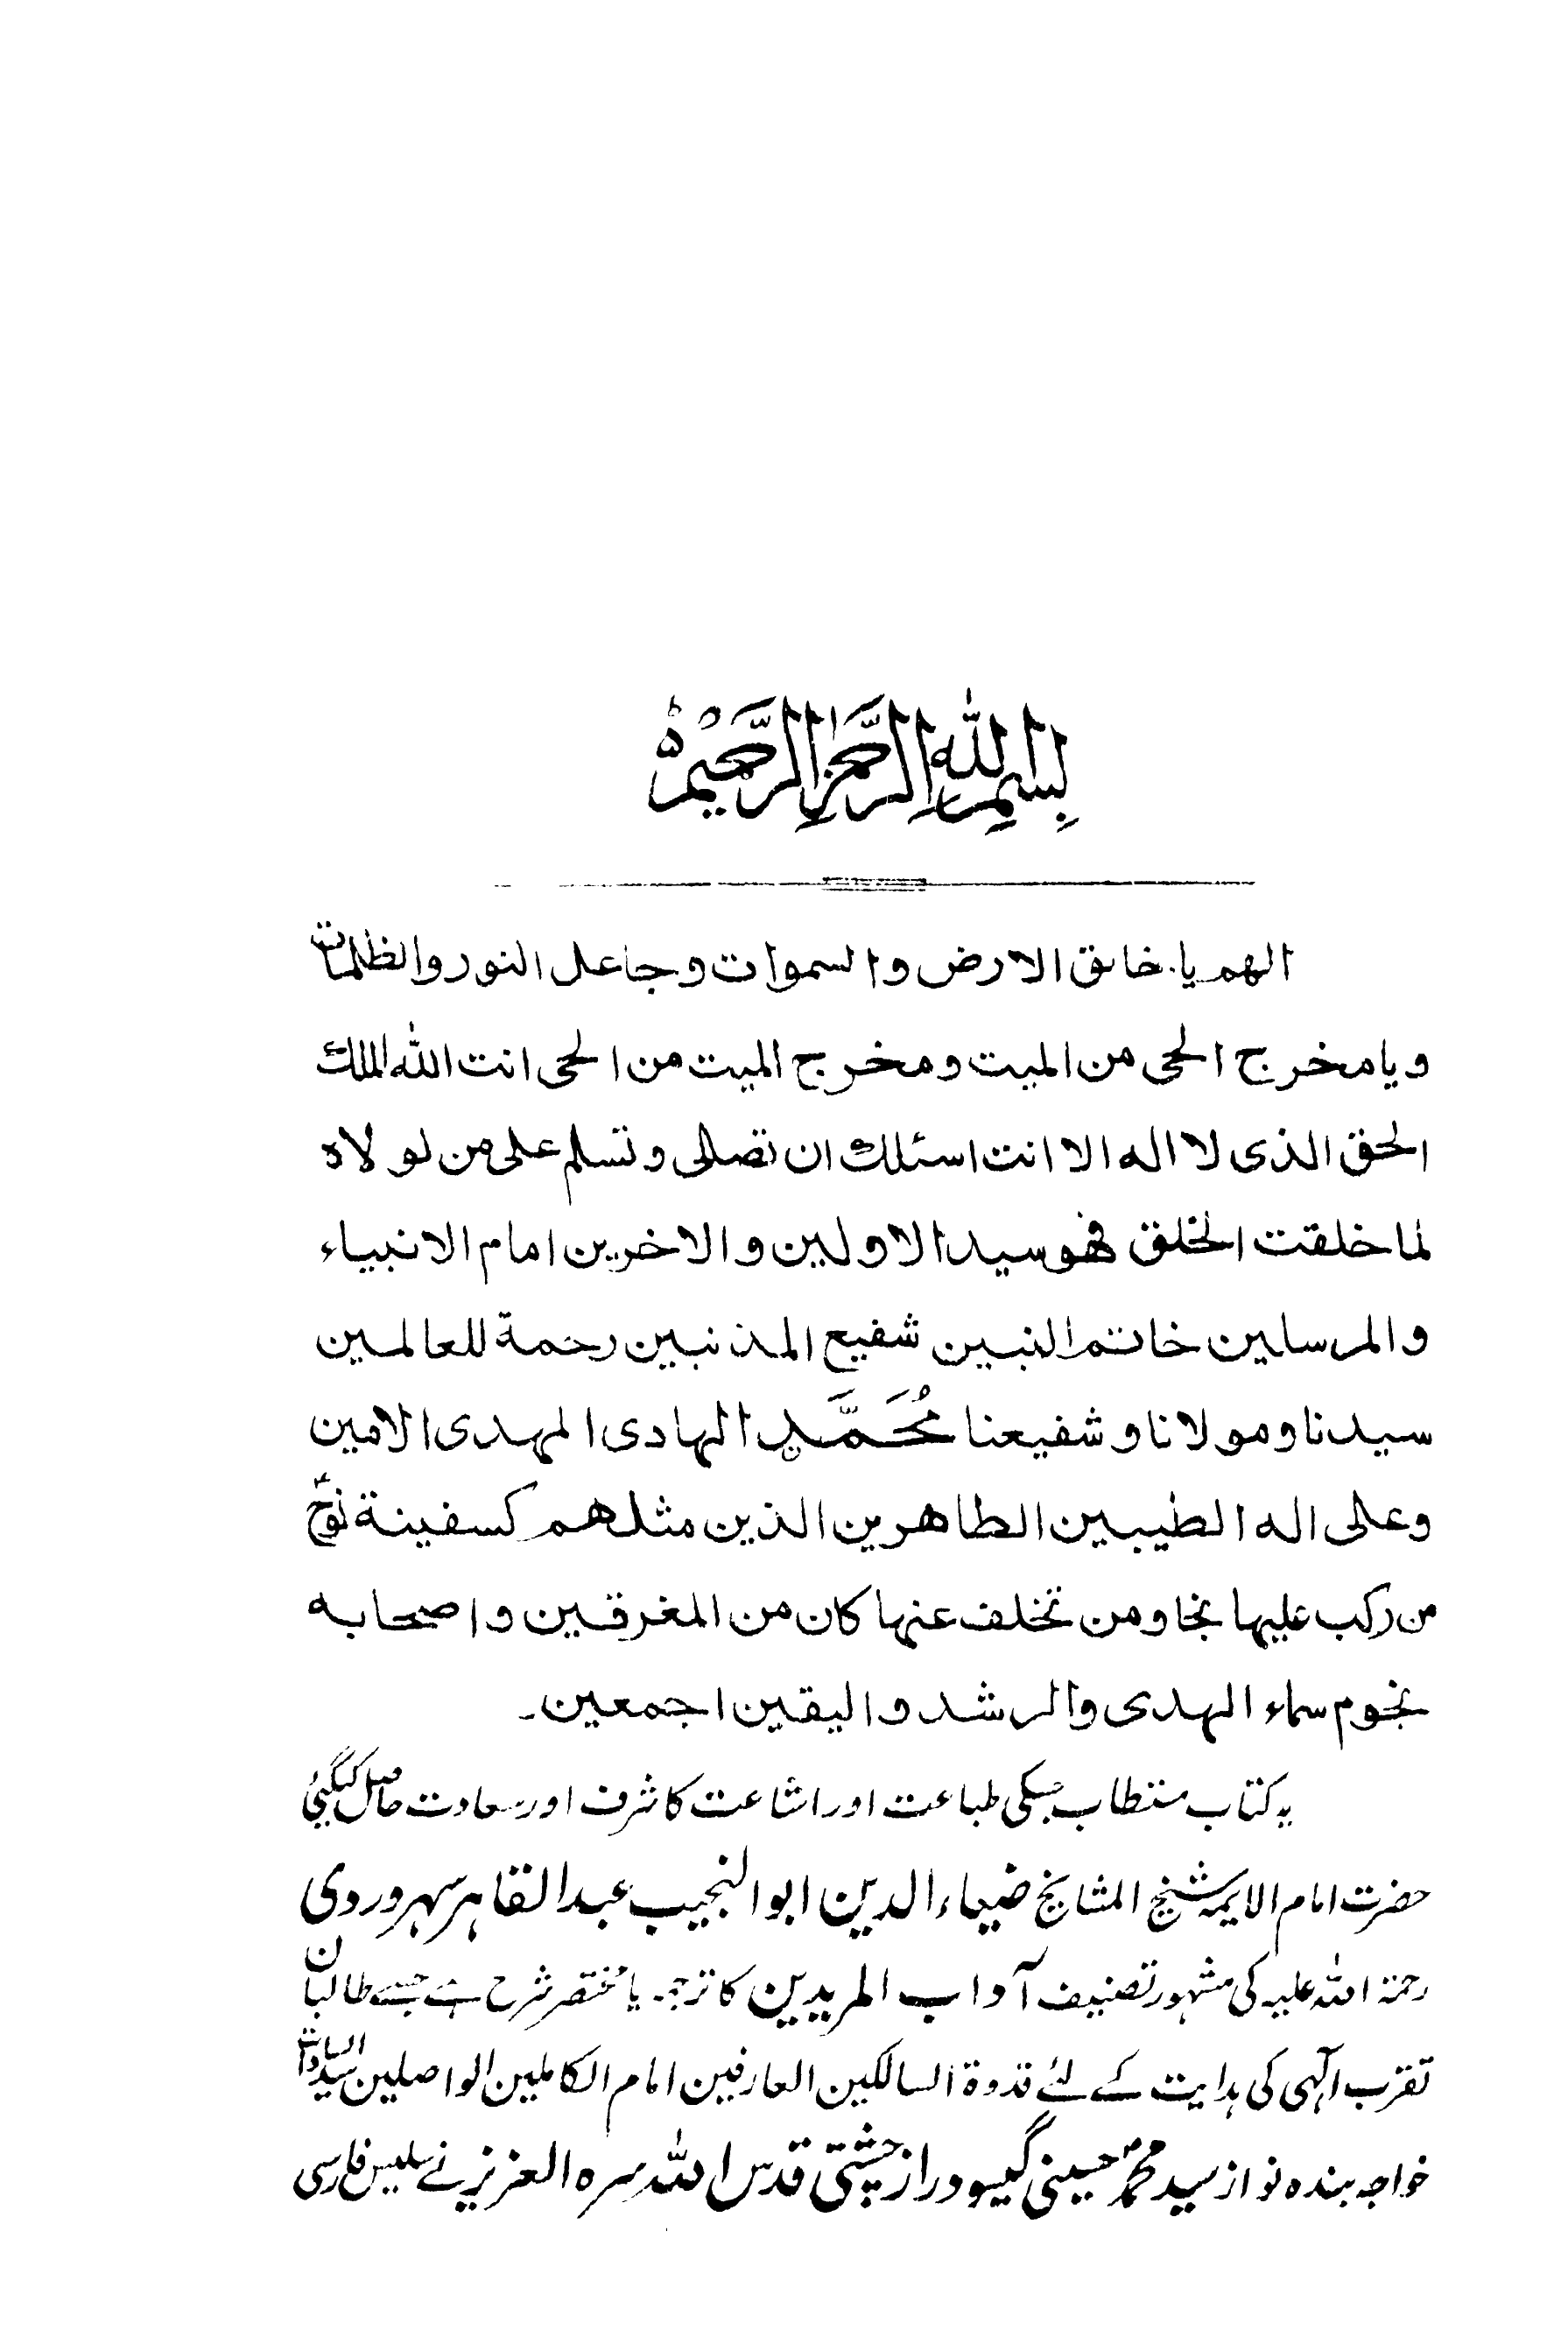 بِسْمِ اللّٰهِ الرَّحْمٰنِ الرَّحِيْمِ
الهم يا خالق الارض والسموات وجاعل النور والظلمات
ويا مخرج الحى من الميت ومخرج الميت من الحى انت اللّٰه الملك
الحق الذى لا اله الا انت اسئلك ان تصلى وتسلم على من لولاه
لما خلقت الخلق فهو سيد الاولين والاخرين امام الانبياء
والمرسلين خاتم النبين شفيع المذنبين رحمة للعالمين
سيدنا ومولانا وشفيعنا مُحَمَّدٍ الهادى المهدى الامين
وعلى اله الطيبين الطاهرين الذين مثلهم كسفينة نوحؑ
من ركب عليها نجا ومن تخلف عنها كان من المغرقين واصحابه
نجوم سماء الهدى والرشد واليقين اجمعين۔
یہ کتاب مستطاب جسکی طباعت اور اشاعت کا شرف اور سعادت حاصل کیگئی
حضرت امام الایمہ شیخ المشایخ ضیاء الدین ابو النجیب عبد القاہر سہروردی
رحمۃ اللہ علیہ کی مشہور تصنیف آداب المریدین کا ترجمہ یا مختصر شرح ہے جسے طالبان
تقرب آلہی کی ہدایت کے لئے قدوۃ السالکین العارفین امام الکاملین الواصلین سید السادات
خواجہ بندہ نواز سید محمدؐ حسینی گیسو دراز چشتی قدس اللہ سرہ العزیز نے سلیس فارسی